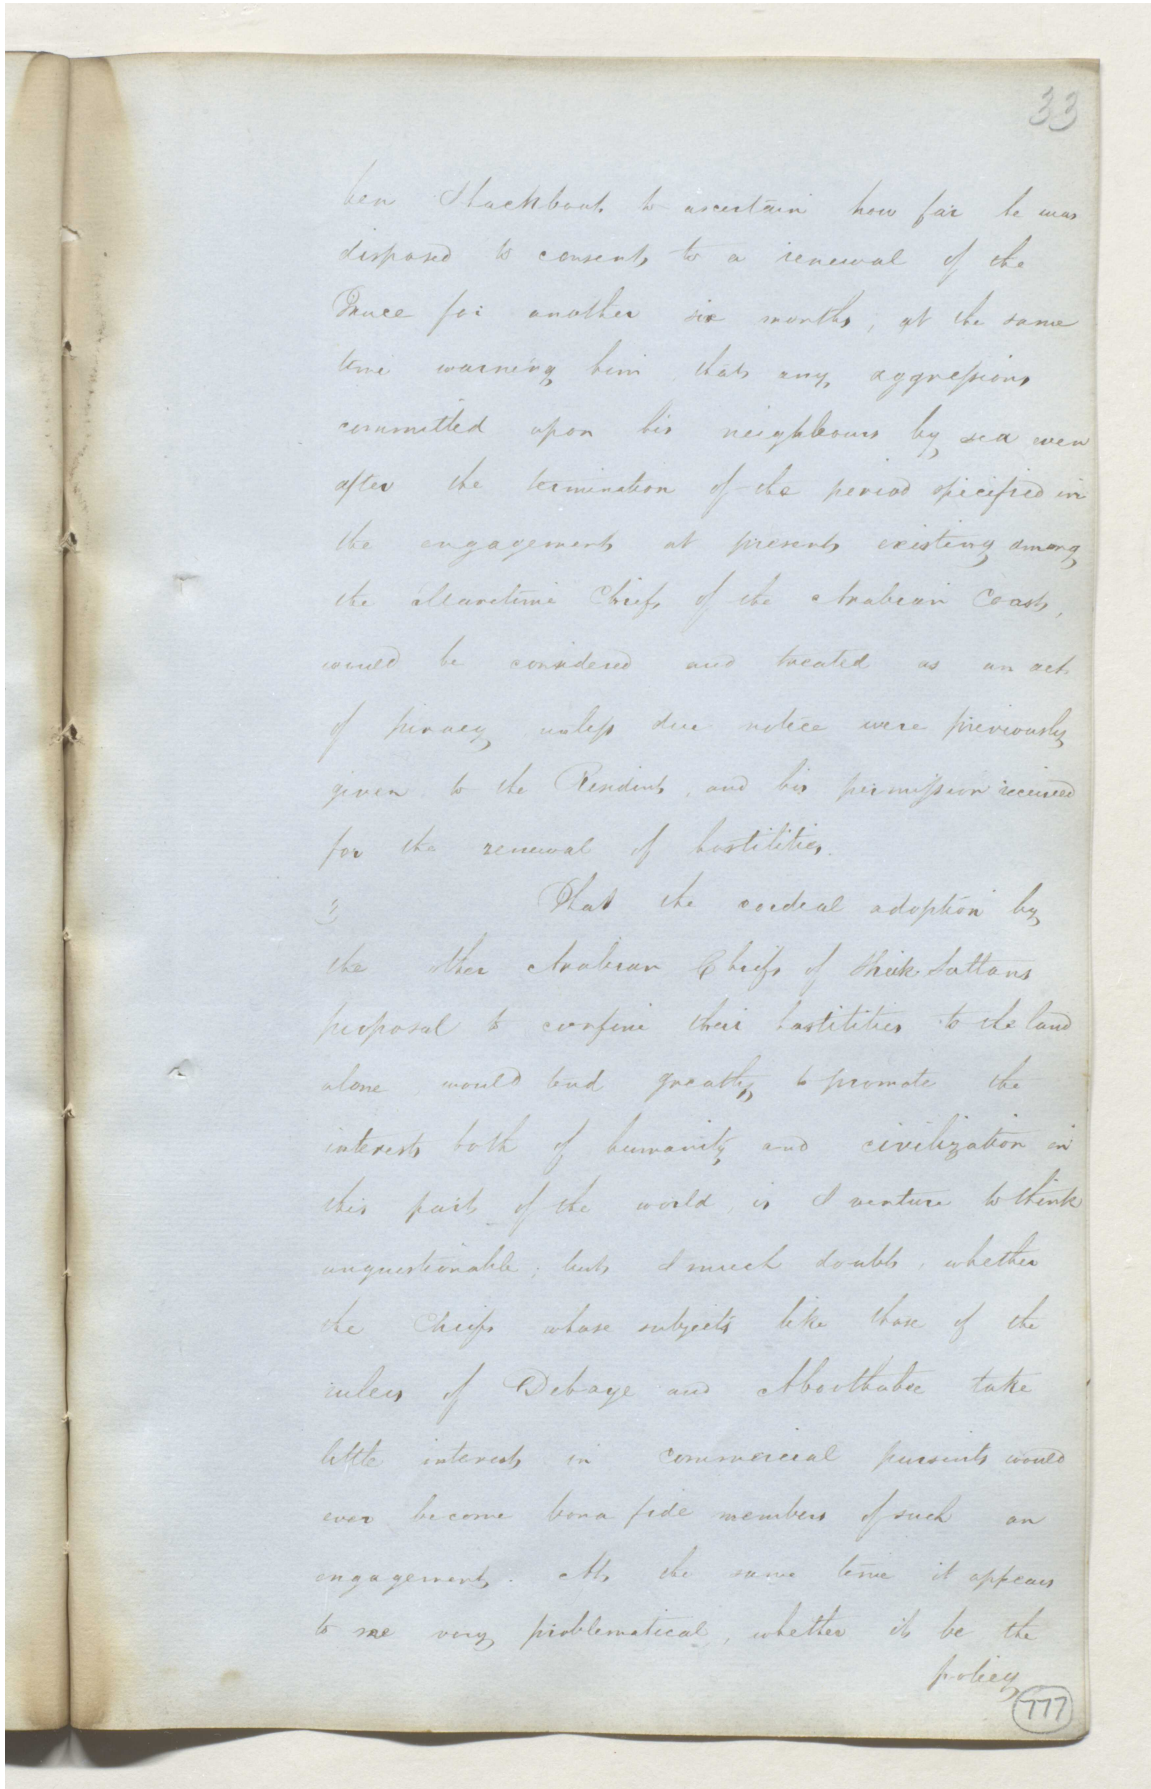 33
ben Shackboot, to ascertain how far he was
disposed to consent to a renewal of the
Truce for another six months, at the same
time warning him that any aggressions
committed upon his neighbours by sea even
after the termination of the period specified in
the engagement at present existing among
the Maritime Chiefs of the Arabian Coast,
would be considered and treated as an act
of piracy unless due notice were previously
given to the Resident, and his permission received
for the renewal of hostilities.
3 That the cordial adoption by
the other Arabian Chiefs of Shiek Sultans
proposal to confine their hostilities to the land
alone would tend greatly to promote the
interests both of humanity and civilization in
this part of the world, is I venture to think
unquestionable; but I much doubt, whether
the Chiefs whose subjects like those of the
rulers of Debaye and Aboothabee take
little interest in commercial pursuits would
ever become bona fide members of such an
engagement. At the same time it appears
to me very problematical, whether it be the
policy
777